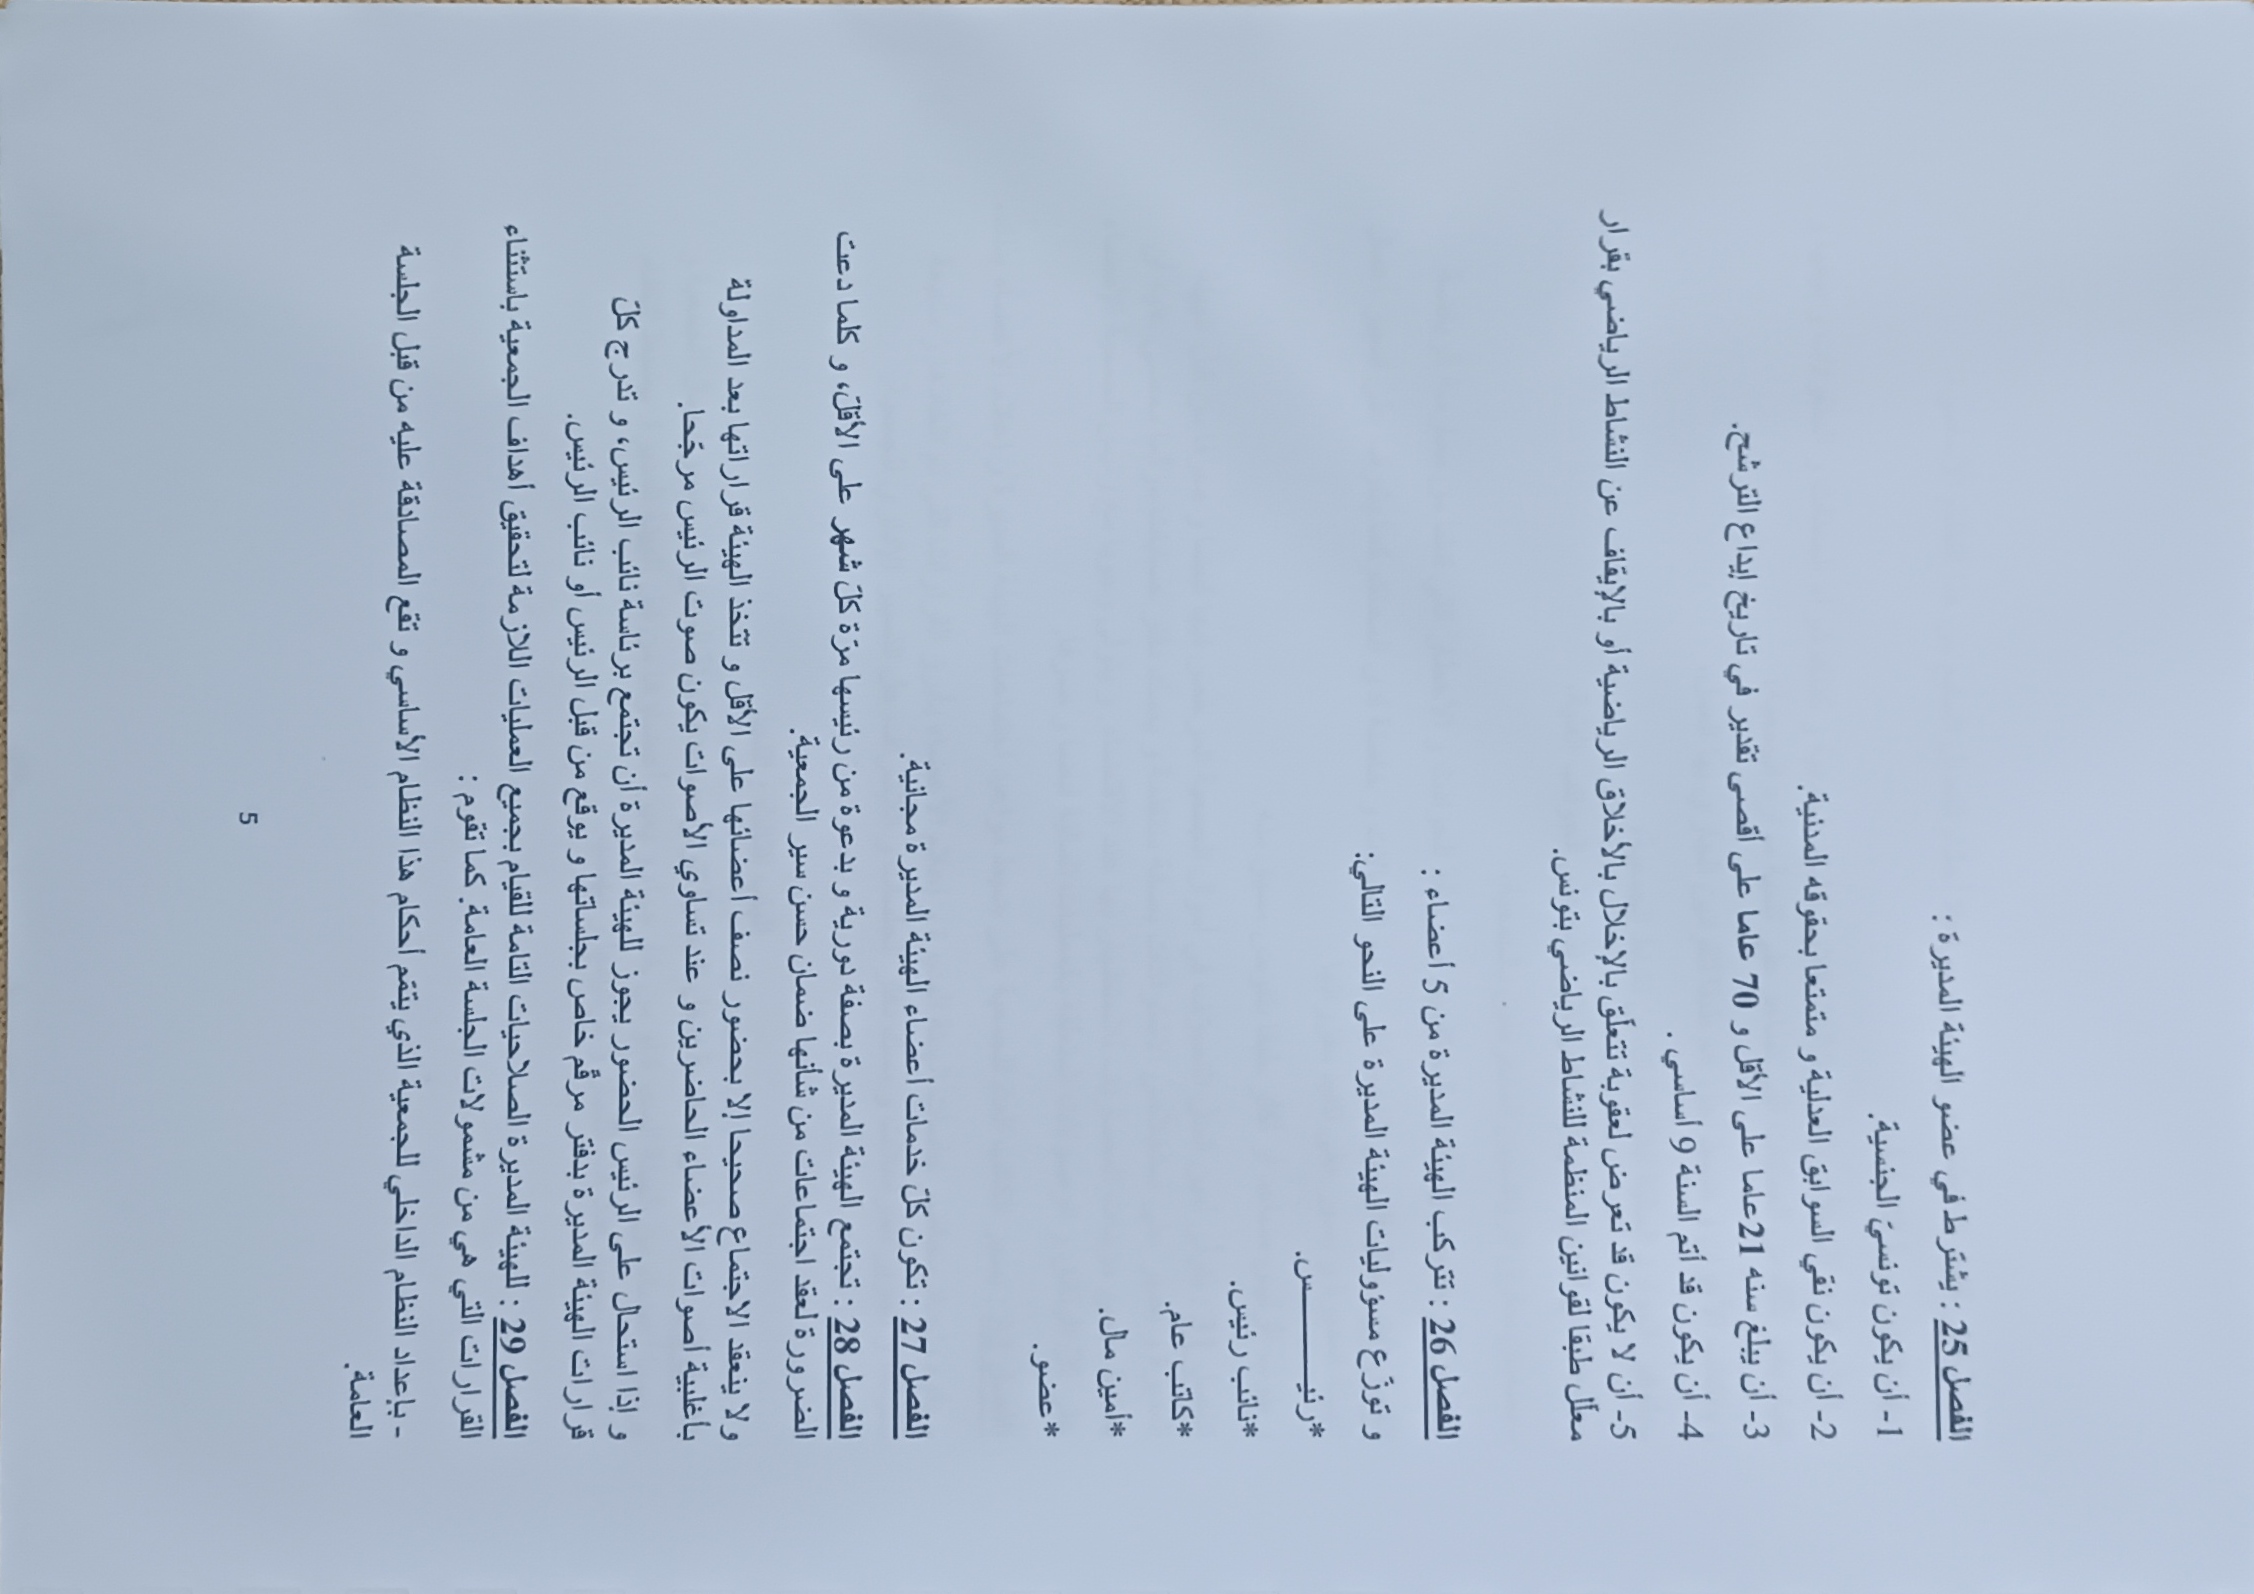 الفصل 25 : يشترط في عضو الهيئة المديرة :
1- أن يكون تونسيّ الجنسية.
2- أن يكون نقي السوابق العدلية و متمتعا بحقوقه المدنية.
3- أن يبلغ سنه 21عاما على الأقل و 70 عاما على أقصى تقدير في تاريخ إيداع الترشح.
4- أن يكون قد أتم السنة 9 أساسي .
5- أن لا يكون قد تعرض لعقوبة تتعلّق بالإخلال بالأخلاق الرياضية أو بالإيقاف عن النشاط الرياضي بقرار
معلّل طبقا لقوانين المنظمة للنشاط الرياضي بتونس.
الفصل 26 : تتركب الهيئة المديرة من 5 أعضاء :
و توزّع مسؤوليات الهيئة المديرة على النحو التالي:
*رئيـــــــــس.
*نائب رئيس.
*كاتب عام.
*أمين مال.
*عضو.
الفصل 27 : تكون كلّ خدمات أعضاء الهيئة المديرة مجانية.
الفصل 28 : تجتمع الهيئة المديرة بصفة دورية و بدعوة من رئيسها مرّة كلّ شهر على الأقلّ، و كلما دعت
الضرورة لعقد اجتماعات من شأنها ضمان حسن سير الجمعية.
و لا ينعقد الاجتماع صحيحا إلا بحضور نصف أعضائها على الأقل و تتخذ الهيئة قراراتها بعد المداولة
بأغلبية أصوات الأعضاء الحاضرين و عند تساوي الأصوات يكون صوت الرئيس مرجّحا.
و إذا استحال على الرئيس الحضور يجوز للهيئة المديرة أن تجتمع برئاسة نائب الرئيس، و تدرج كلّ
قرارات الهيئة المديرة بدفتر مرقّم خاص بجلساتها و يوقع من قبل الرئيس أو نائب الرئيس.
الفصل 29 : للهيئة المديرة الصلاحيات التامة للقيام بجميع العمليات اللازمة لتحقيق أهداف الجمعية باستثناء
القرارات التي هي من مشمولات الجلسة العامة. كما تقوم :
- بإعداد النظام الداخلي للجمعية الذي يتمّم أحكام هذا النظام الأساسي و تقع المصادقة عليه من قبل الجلسة
العامة.
5